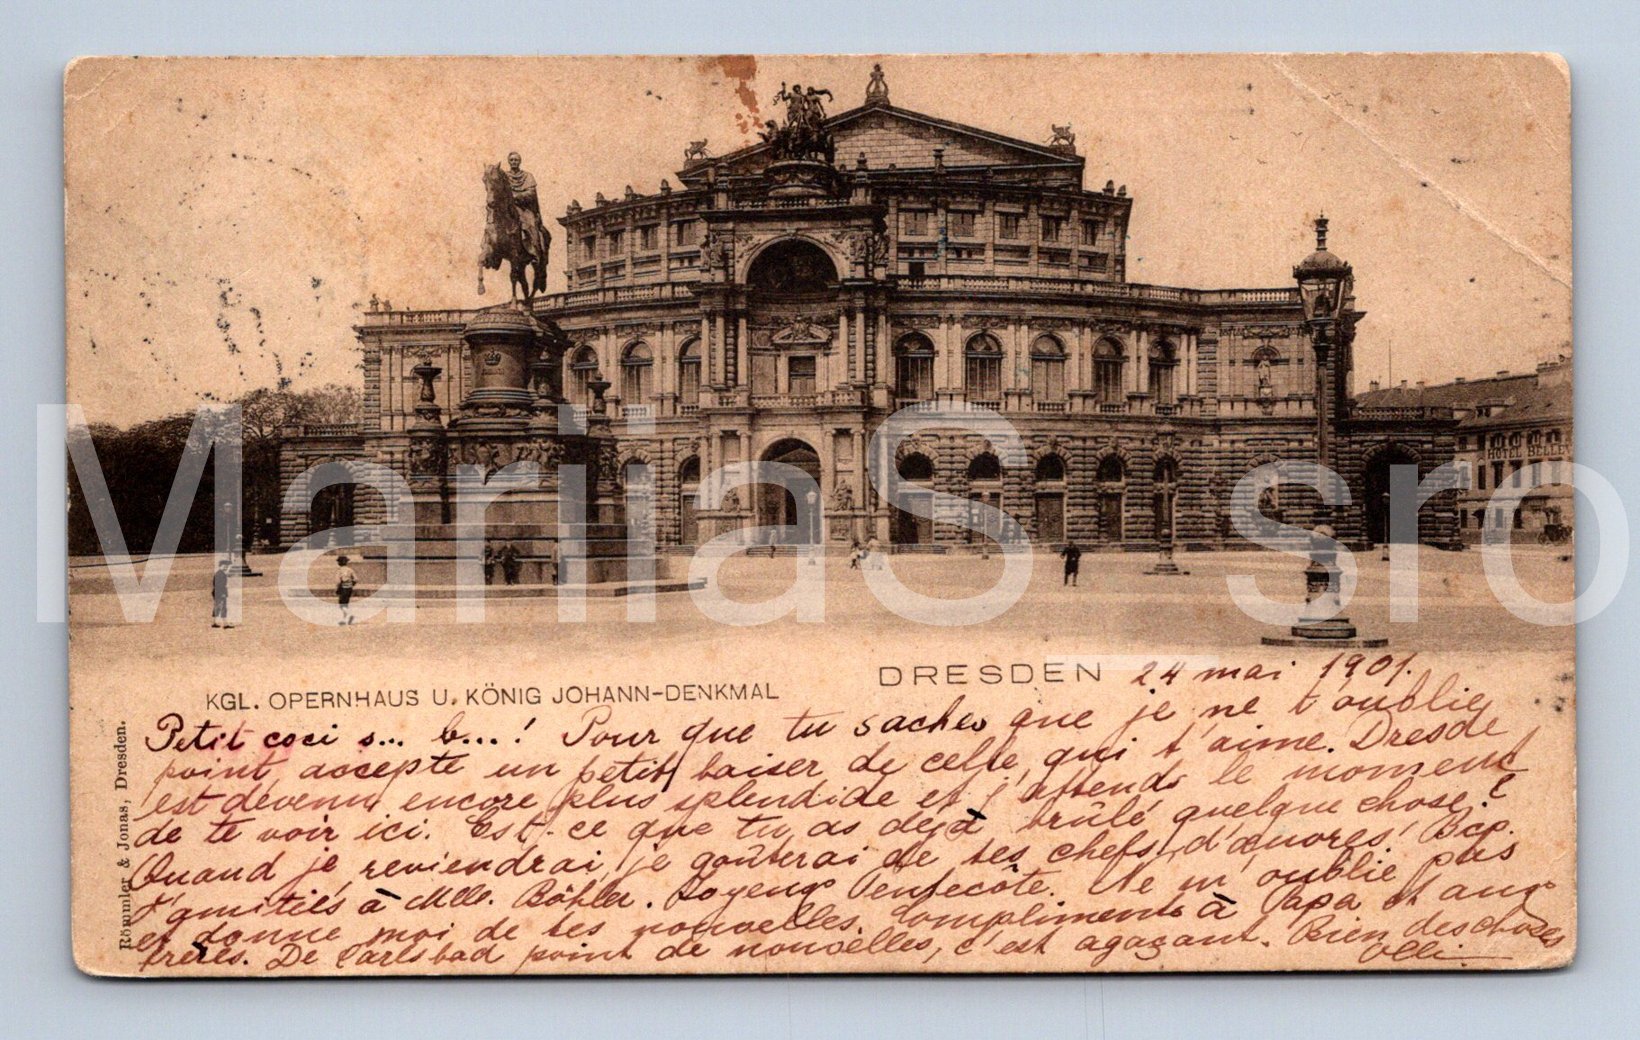 HOTEL BELLEV
MariiaS_sro
DRESDEN 24 mai 1901.
KGL. OPERNHAUS U. KÖNIG JOHANN-DENKMAL
Römmler & Jonas, Dresden.
Petit coci s... b...! Pour que tu saches que je ne t'oublie
point, accepte un petit baiser de celle, qui t'aime. Dresde
est devenu encore plus splendide et j'attends le moment
de te voir ici. Est-ce que tu as déjà brûlé quelque chose?
Quand je reviendrai, je goûterai de tes chefs d'œuvres! Bcp.
d'amitiés à Mlle. Böhler. Pentecôte. Ne m'oublie pas
et donne moi de tes nouvelles. Compliments à Papa et aux
frères. De Carlsbad point de nouvelles, c'est agaçant. Bien des choses
Olli